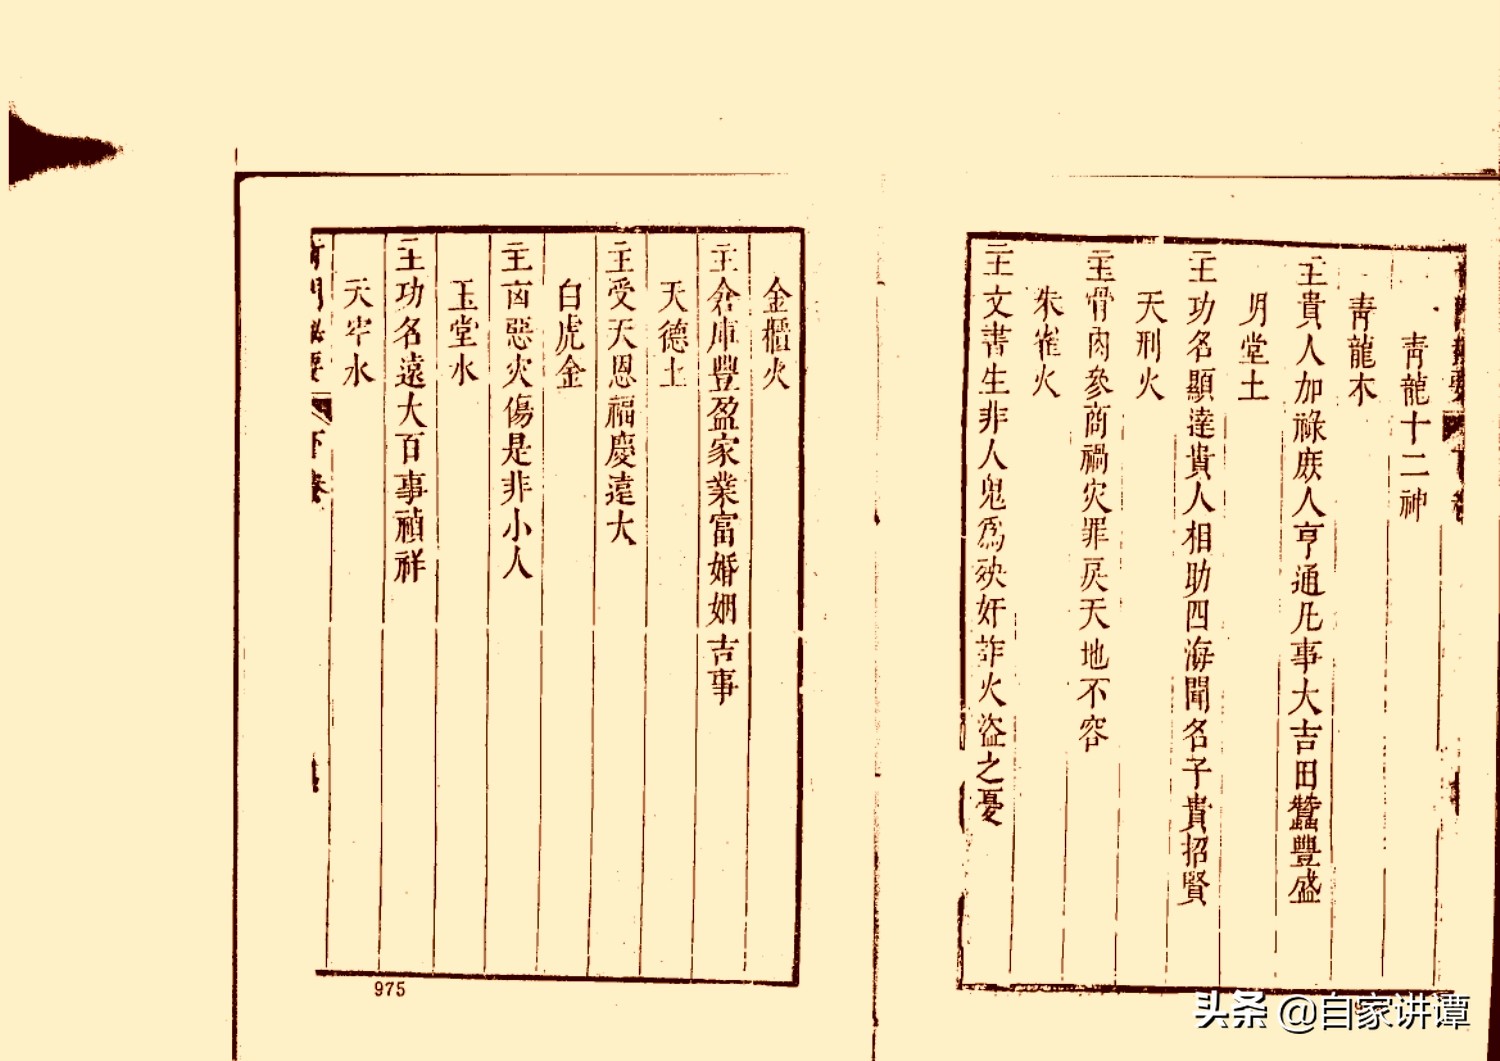 青龍十二神
青龍木
主貴人加祿庶人亨通凡事大吉田蠶豐盛
明堂土
主功名顯達貴人相助四海聞名子貴招賢
天刑火
主骨肉參商禍灾罪戾天地不容
朱雀火
主文書生非人鬼爲殃奸詐火盜之憂
金櫃火
主倉庫豐盈家業富婚姻吉事
天德土
主受天恩福慶遠大
白虎金
主凶惡灾傷是非小人
玉堂水
主功名遠大百事禎祥
天牢水
975
头条 @自家讲谭